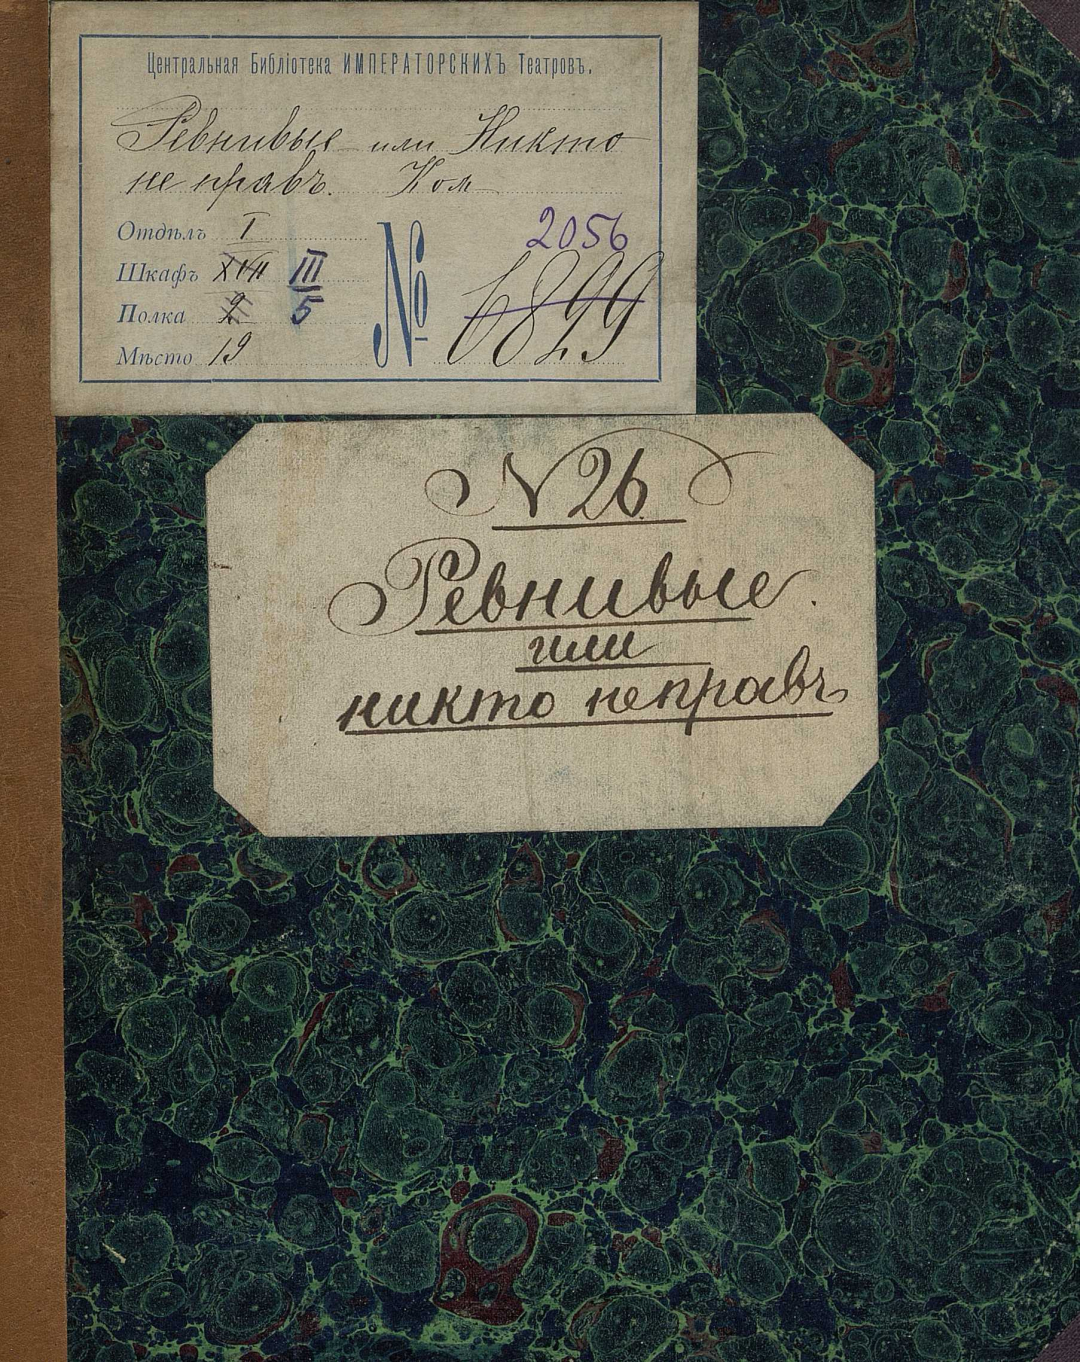 Центральная Библіотека ИМПЕРАТОРСКИХЪ Театровъ.
Ревнивые или Никто
не правъ. Ком
Отдѣлъ I
Шкафъ XVII III
Полка 2 5
Мѣсто 19
№ 2056
6899
N 26.
Ревнивые.
или
никто неправъ